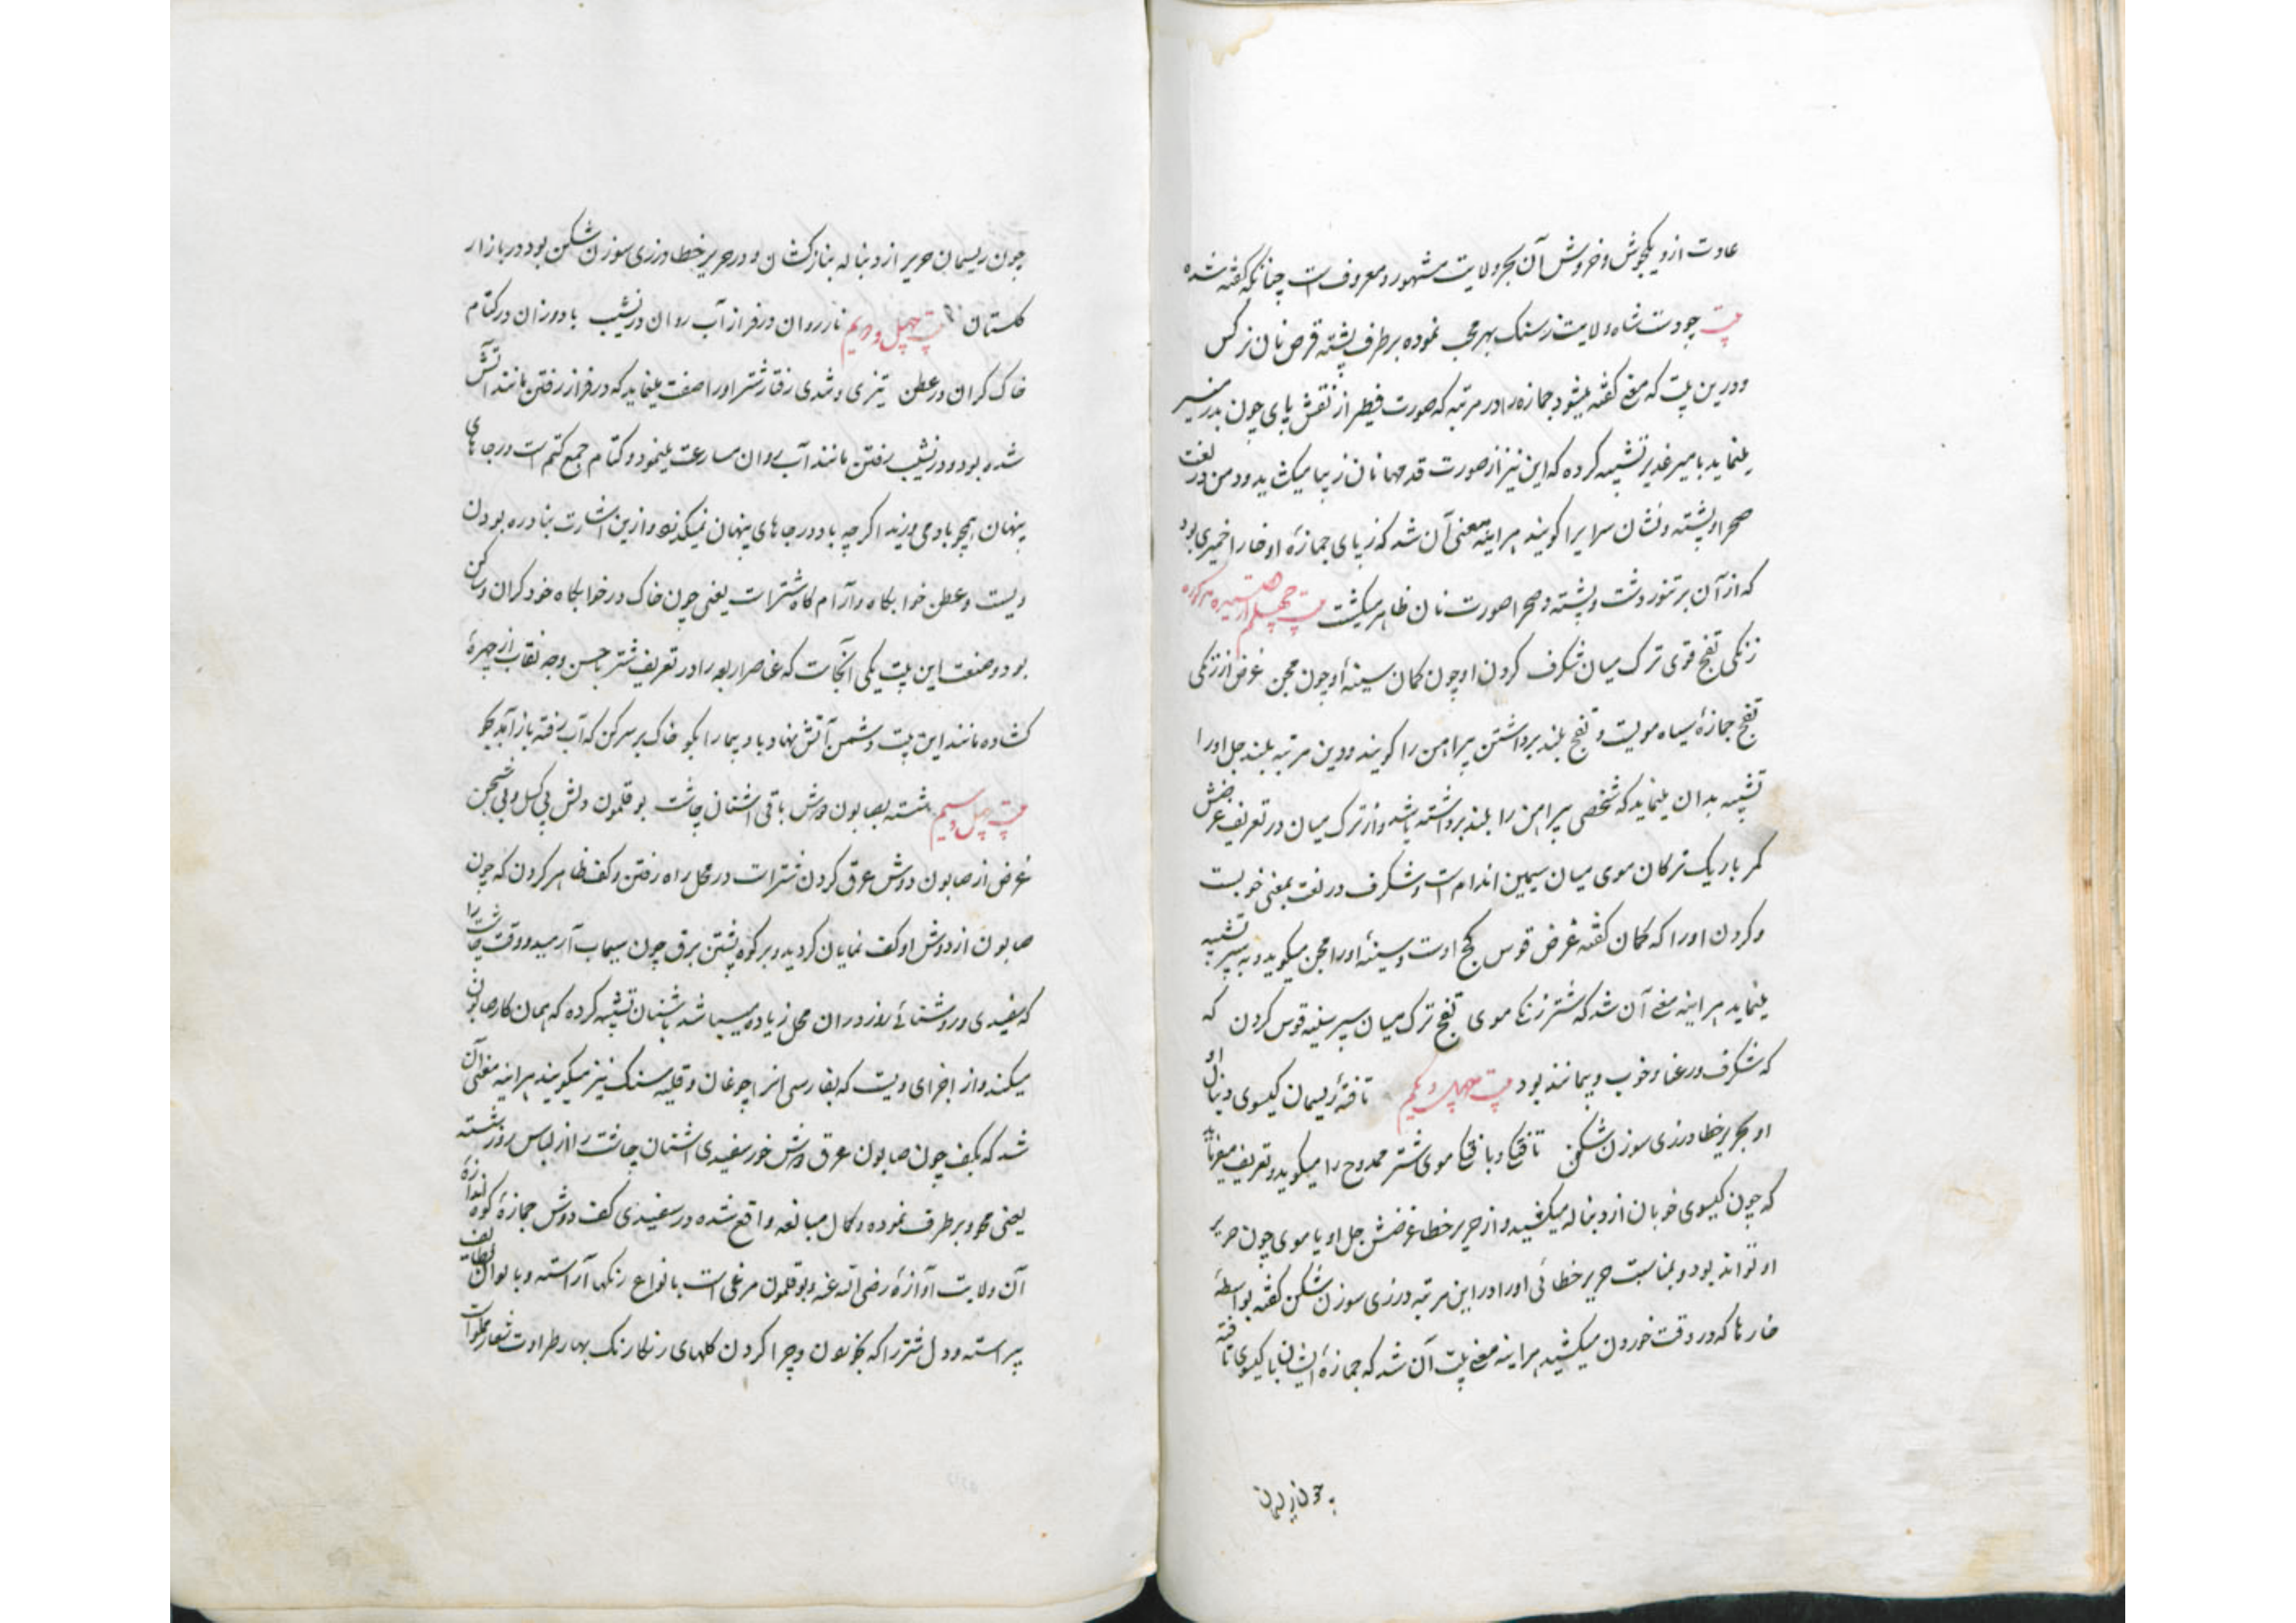 عادت از دیکجوش و خروش آن بحر ولایت مشهور و معروفست چنانکه گفته شده
بیت چو دست شاه ولایت ز سنک بهر محب نموده بر طرف پشته قرص نان نرکس
و درین بیت که مغ گفته میشود جمازه را در مرتبه که صورت فطیر از نقش پای چون بدر منیر
مینماید با میر غدیر تشبیه کرده که این نیز از صورت قدمها نان زیبا میکشید و دمن در لغت
صحرا و پشته و نشان سرا یرا کویند هر اینه معنی آن شد که ز پای جمازهٔ او خار را خمیری بود
که از آن بر تنور دشت و پشته و صحرا صورت نان ظاهر میکشت بیت چهلم
زنکی تفج قوی ترک میان شکرف کردن او چون کمان سینهٔ او چون مجن غرض از زنکی
تفج جمازهٔ سیاه مویست و تفج بلند برداشتن پیراهن را کویند و دین مرتبه بلند جل او را
تشبیه بدان مینماید که شخصی پیراهن را بلند برداشته باشد و از ترک میان در تعریف غرضش
کمر باریک ترکان موی میان سیمین اندامست و شکرف در لغت بمعنی خوبست
و کردن او را که کمان گفته غرض قوس کج اوست و سینهٔ او را مجن میکوید و به سپر تشبیه
مینماید هر اینه مغے آن شد که شتر زنکے موی تفج ترک میان سپر سینه قوس کردن که
که شکرف و رعنا و خوب و بیمانند بود بیت چهل و یکم تافتهٔ ریسمان کیسوی دنبال او
او بحریر خطا درزی سوزن شکن تافتکے و بافتکے موی شتر ممدوح را میکوید و تعریف میفرماید
که چون کیسوی خوبان از دنباله میکشید و از حریر خطا غرضش جل او یا موی چون حریر
او تواند بود و بمناسبت حریر خطائی او را در این مرتبه درزی سوزن شکن گفته بواسطهٔ
خارها که در وقت خوردن میکشید هر اینه مغے بیت آن شد که جمازهٔ ایشان با کیسوی تافته
چون ریسمان
چون ریسمان حریر از دنباله بناز کشان و در حریر خطا درزی سوزن شکن بود در بازار
کلستان بیت چهل و دویم نار روان در فراز آب روان در نشیب باد وزان در کتام
خاک کران در عطن تیزی و شدی رفتار شتر او را صفت مینماید که در فراز رفتن مانند آتش
شده بود و در نشیب رفتن مانند آب روان مسارعت مینمود و کتام جمع کتم است در جاهای
پنهان همچو باد می وزید اکرچه باد در جاهای پنهان نمیکذرد و ازین اشارت بنادره بودن
ویست و عطن خوابکاه و آرام کاه شترانست یعنی چون خاک در خوابکاه خود کران و ساکن
بود و صنعت این بیت یکی آنجاست که عناصر اربعه را در تعریف شتر باحسن وجه نقاب از چهرهٔ
کشاده مانند این بیت دشمن آتش نهاد باد پیما را بکو خاک بر سر کن که آب رفته باز آمد بجو
بیت چهل و سیم شسته بصابون دوش باقی اشنان چاشت بوقلمون دلش بی کسل و بی شجن
غرض از صابون دوش عرق کردن شترانست در محل راه رفتن و کف ظاهر کردن که چون
صابون از دوش او کف نمایان کردید و بر کوه پشتش برق چون سیماب آرمید و وقت چاشت را
که سفیدی و روشنائے روز در ان محل زیاده میباشد باشنان تشبیه کرده که همان کار صابون
میکند و از اجزای ویست که بفارسی انرا چوغان و قلیه سنک نیز میکویند هر اینه معنی آن
شد که بکف چون صابون عرق دوش خود سفیدی اشنان چاشت را از لباس روز شسته
یعنی محو و بر طرف نموده و کمال مبالغه واقع شده در سفیدی کف دوش جمازهٔ کوه اندازهٔ
آن ولایت آوازهٔ رضی الله عنه و بوقلمون مرغی است بانواع رنکها آراسته و بالوان لطایف
پیراسته و دل شتر را که بخوردن و چرا کردن کلهای رنکارنک بهار طراوت شعار